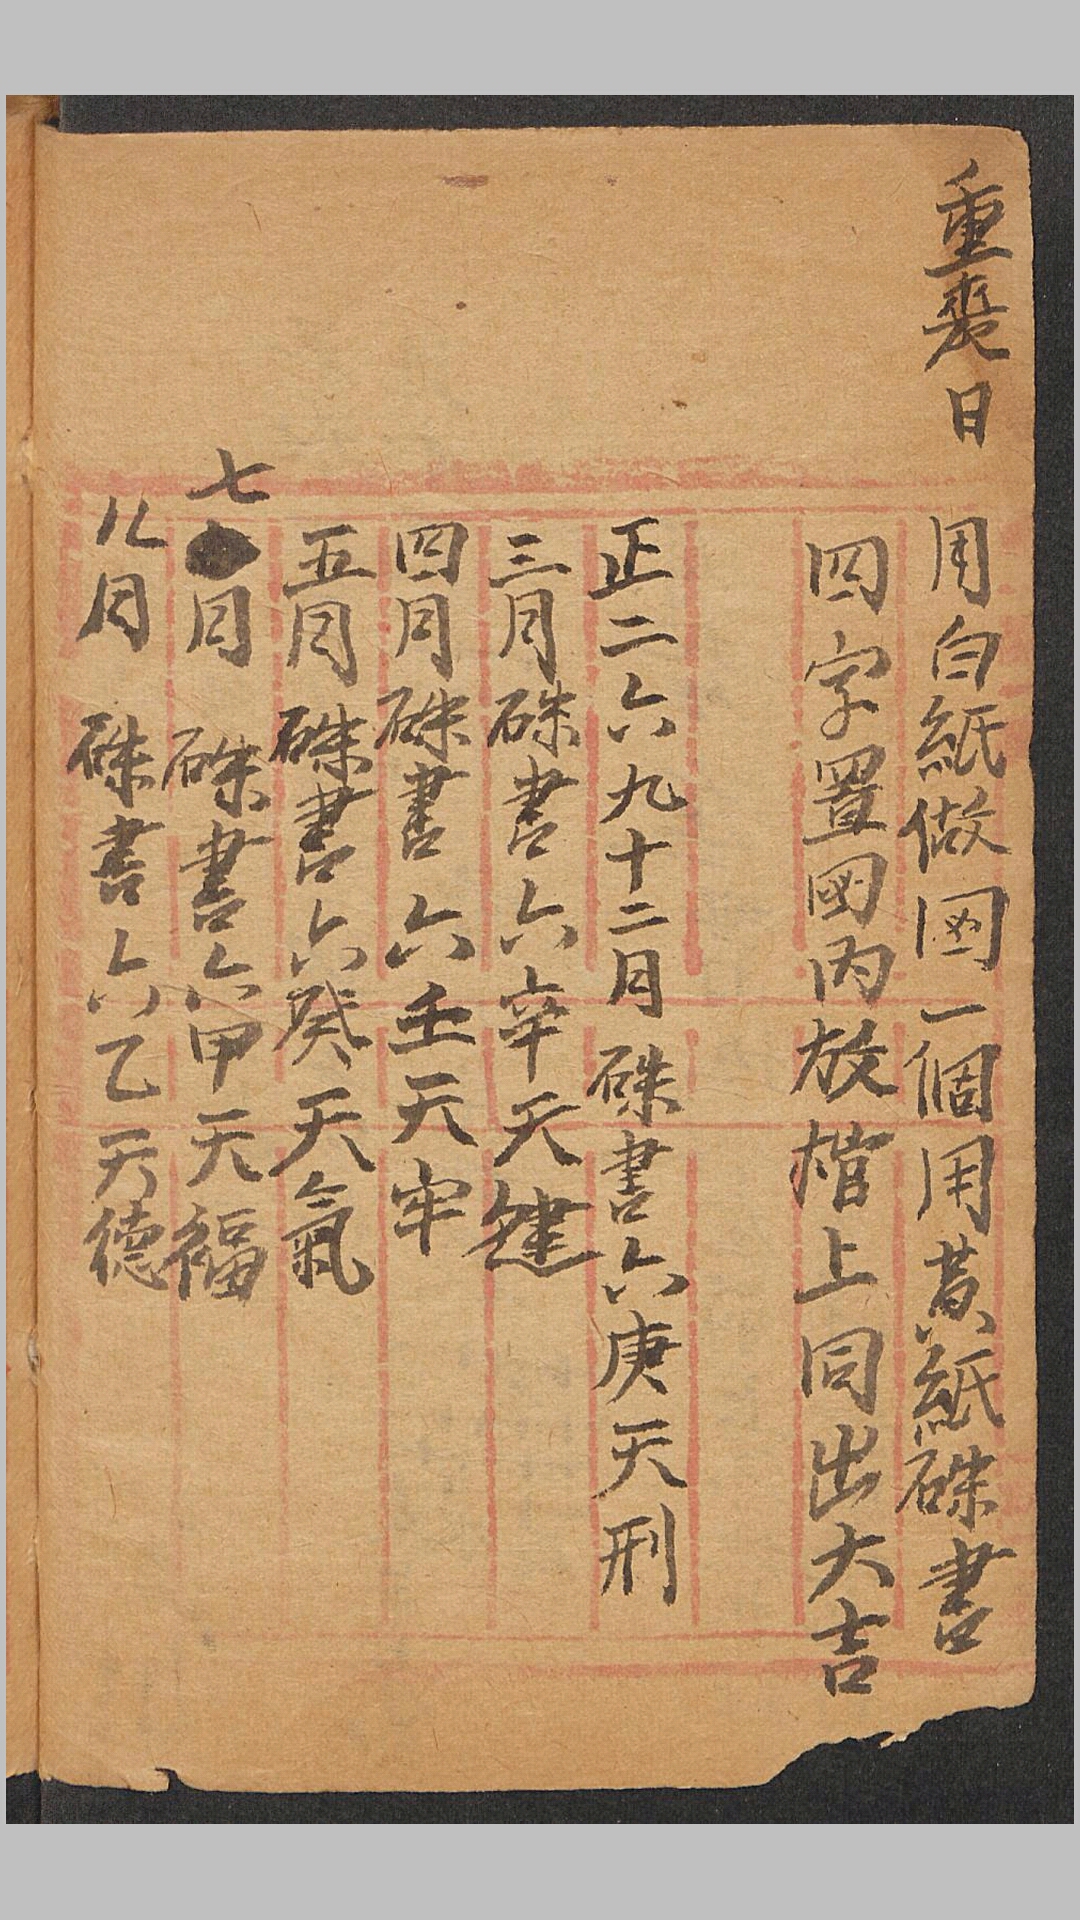 重喪日
用白紙做国一個用黄紙硃書
四字置国内放棺上同出大吉
正二六九十二月硃書六庚天刑
三月硃書六辛天建
四月硃書六壬天牢
五月硃書六癸天氣
七月硃書六甲天福
八月硃書六乙天德